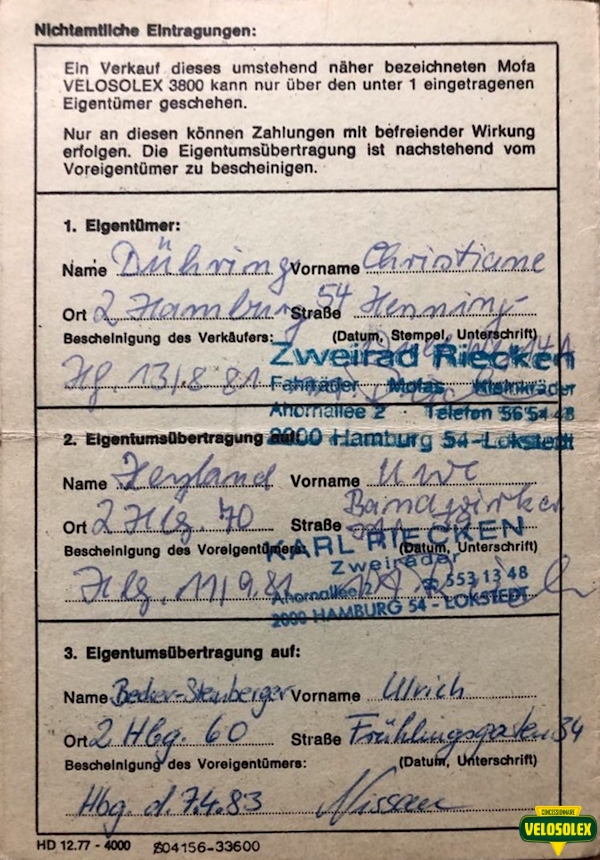 Nichtamtliche Eintragungen:
Ein Verkauf dieses umstehend näher bezeichneten Mofa
VELOSOLEX 3800 kann nur über den unter 1 eingetragenen
Eigentümer geschehen.
Nur an diesen können Zahlungen mit befreiender Wirkung
erfolgen. Die Eigentumsübertragung ist nachstehend vom
Voreigentümer zu bescheinigen.
1. Eigentümer:
Name Dühring Vorname Christiane
Ort 2 Hamburg 54 Straße Henning-
Bescheinigung des Verkäufers: (Datum, Stempel, Unterschrift)
Zweirad Riecken
Hg. 13/8 81 Fahrräder Mofas Kleinkräder
Ahornallee 2 Telefon 56 54 48
2000 Hamburg 54-Lokstedt
2. Eigentumsübertragung auf:
Name Heyland Vorname Uwe
Ort 2 Hbg. 70 Straße Bandwirker
KARL RIECKEN
Bescheinigung des Voreigentümers: (Datum, Unterschrift)
Zweiräder
Hbg. 11/9.81 Ahornallee 2 553 13 48
2000 HAMBURG 54 - LOKSTEDT
3. Eigentumsübertragung auf:
Name Becker-Stenberger Vorname Ulrich
Ort 2 Hbg. 60 Straße Frühlingsgarten 34
Bescheinigung des Voreigentümers: (Datum, Unterschrift)
Hbg. d. 7.4.83 Nissau
HD 12.77 - 4000 S04156-33600
CONCESSIONNAIRE
VELOSOLEX